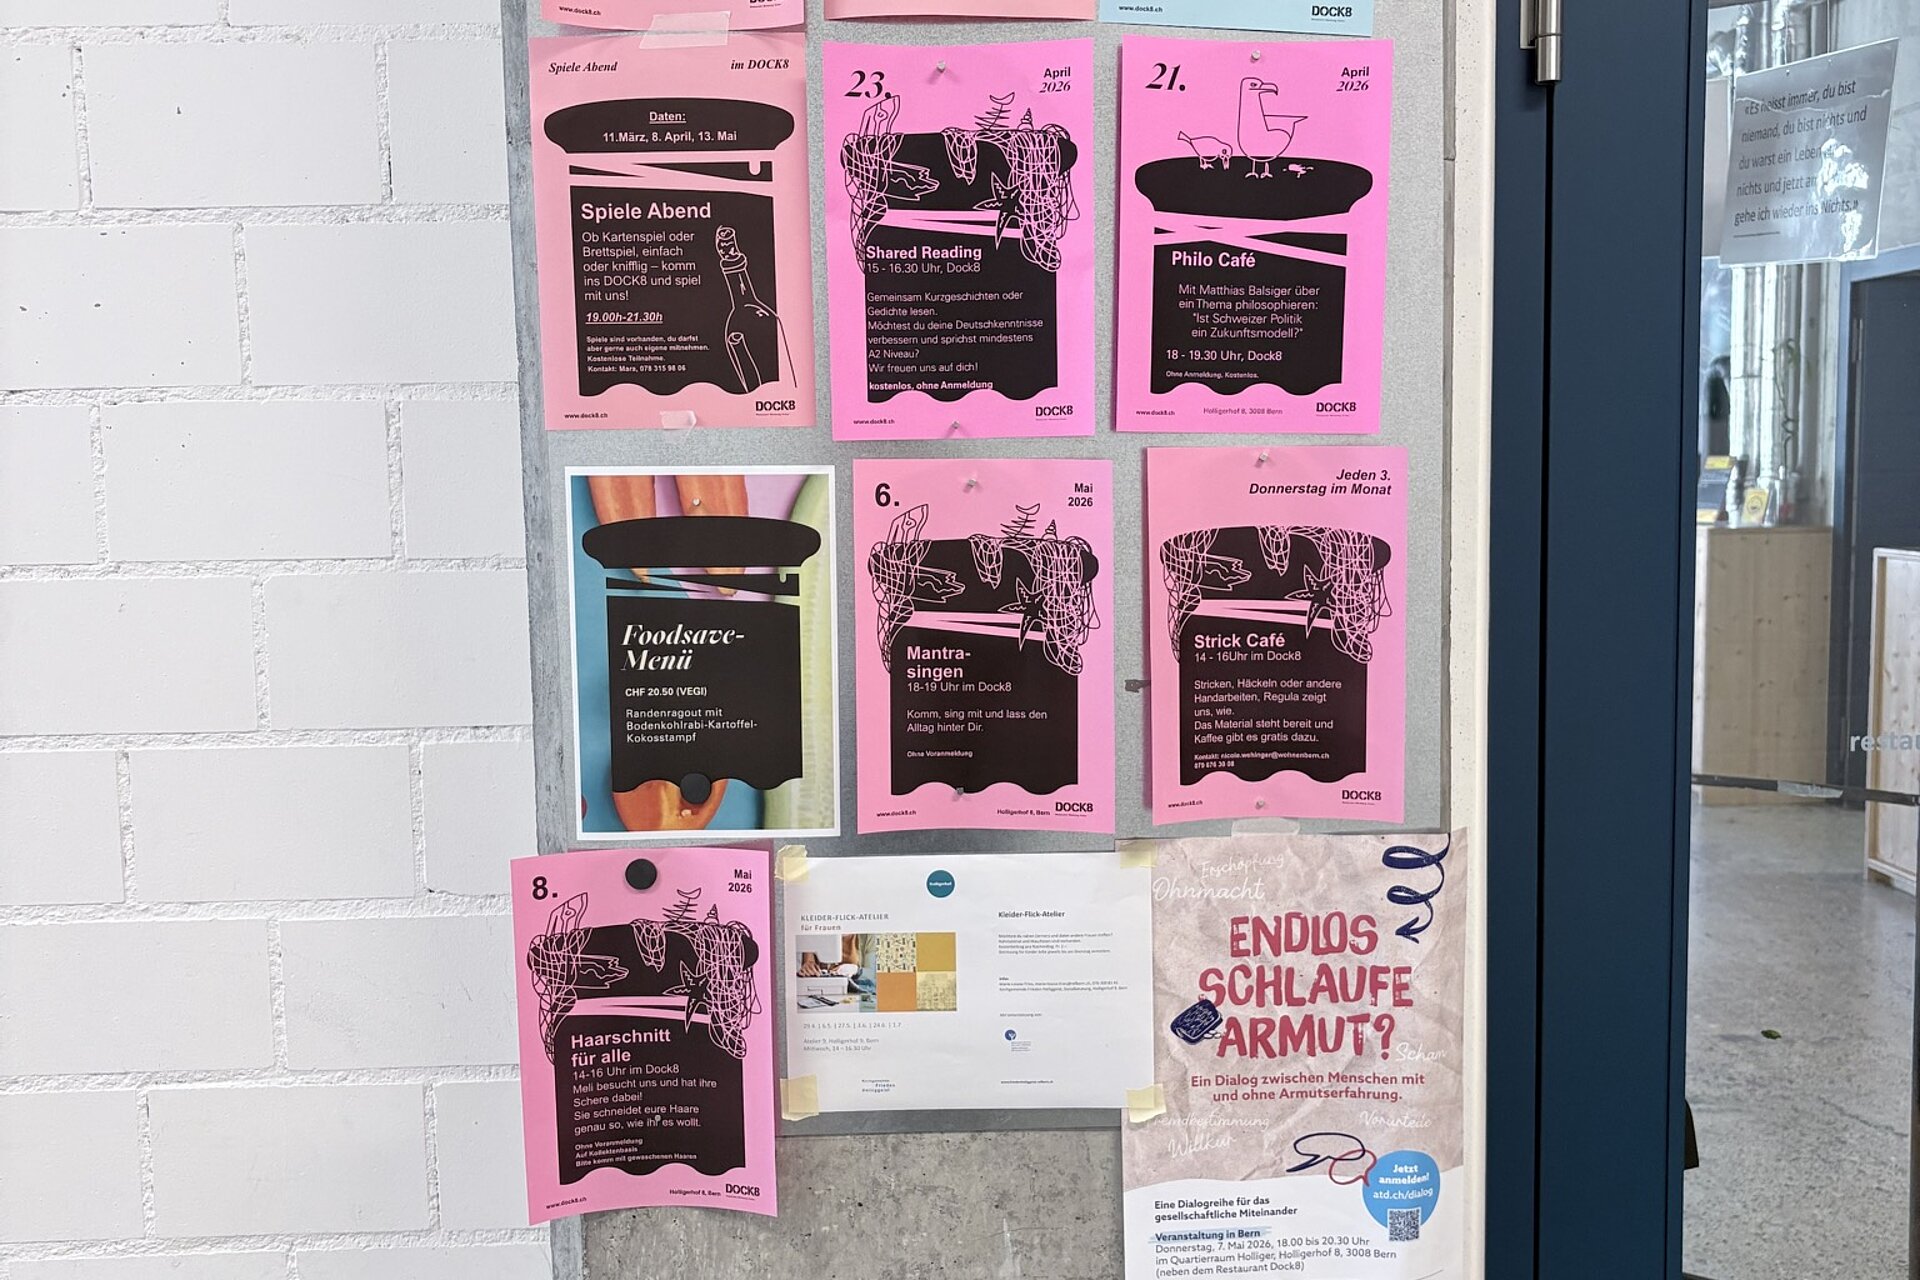 www.dock8.ch
www.dock8.ch
DOCK8
Spiele Abend
im DOCK8
Daten:
11.März, 8. April, 13. Mai
Spiele Abend
Ob Kartenspiel oder
Brettspiel, einfach
oder knifflig – komm
ins DOCK8 und spiel
mit uns!
19.00h-21.30h
Spiele sind vorhanden, du darfst
aber gerne auch eigene mitnehmen.
Kostenlose Teilnahme.
Kontakt: Mara, 078 315 98 06
www.dock8.ch
DOCK8
23.
April
2026
Shared Reading
15 - 16.30 Uhr, Dock8
Gemeinsam Kurzgeschichten oder
Gedichte lesen.
Möchtest du deine Deutschkenntnisse
verbessern und sprichst mindestens
A2 Niveau?
Wir freuen uns auf dich!
kostenlos, ohne Anmeldung
www.dock8.ch
DOCK8
21.
April
2026
Philo Café
Mit Matthias Balsiger über
ein Thema philosophieren:
"Ist Schweizer Politik
ein Zukunftsmodell?"
18 - 19.30 Uhr, Dock8
Ohne Anmeldung, Kostenlos.
www.dock8.ch
Holligerhof 8, 3008 Bern
DOCK8
«Es heisst immer, du bist
niemand, du bist nichts und
du warst ein Leben
nichts und jetzt
gehe ich wieder ins Nichts.»
Foodsave-
Menü
CHF 20.50 (VEGI)
Randenragout mit
Bodenkohlrabi-Kartoffel-
Kokosstampf
6.
Mai
2026
Mantra-
singen
18-19 Uhr im Dock8
Komm, sing mit und lass den
Alltag hinter Dir.
Ohne Voranmeldung
www.dock8.ch
Holligerhof 8, Bern
DOCK8
Jeden 3.
Donnerstag im Monat
Strick Café
14 - 16Uhr im Dock8
Stricken, Häckeln oder andere
Handarbeiten, Regula zeigt
uns, wie.
Das Material steht bereit und
Kaffee gibt es gratis dazu.
Kontakt: nicole.wehinger@wohnenbern.ch
079 876 30 08
www.dock8.ch
DOCK8
8.
Mai
2026
Haarschnitt
für alle
14-16 Uhr im Dock8
Meli besucht uns und hat ihre
Schere dabei!
Sie schneidet eure Haare
genau so, wie ihr es wollt.
Ohne Voranmeldung
Auf Kollektenbasis
Bitte komm mit gewaschenen Haaren
www.dock8.ch
Holligerhof 8, Bern
DOCK8
holligerhof
KLEIDER-FLICK-ATELIER
für Frauen
29.4. | 6.5. | 27.5. | 3.6. | 24.6. | 1.7.
Atelier 9, Holligerhof 9, Bern
Mittwoch, 14 – 16.30 Uhr
Kirchgemeinde
Frieden
Heiliggeist
Kleider-Flick-Atelier
Erschöpfung
Ohnmacht
ENDLOS
SCHLAUFE
ARMUT?
Scham
Ein Dialog zwischen Menschen mit
und ohne Armutserfahrung.
Fremdbestimmung
Vorurteile
Willkür
Jetzt
anmelden!
atd.ch/dialog
Eine Dialogreihe für das
gesellschaftliche Miteinander
Veranstaltung in Bern
Donnerstag, 7. Mai 2026, 18.00 bis 20.30 Uhr
im Quartierraum Holliger, Holligerhof 8, 3008 Bern
(neben dem Restaurant Dock8)